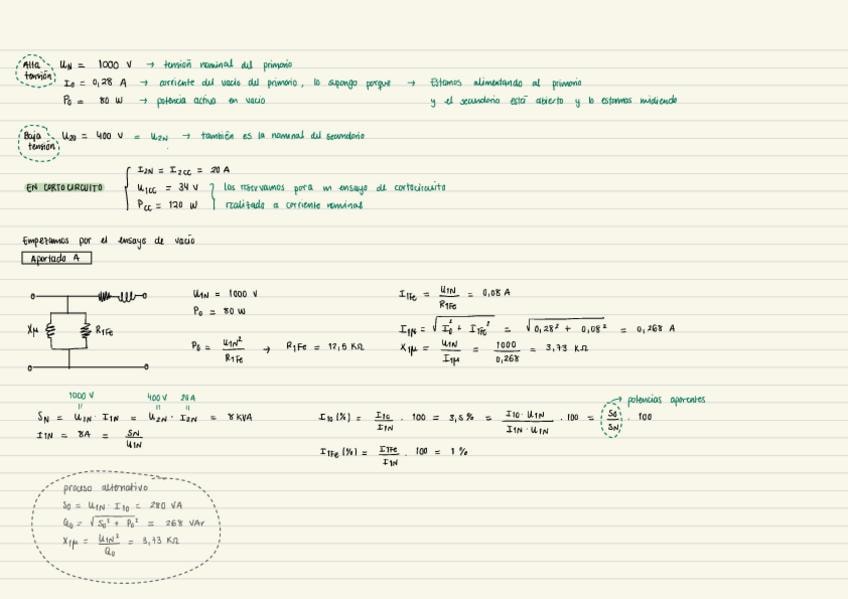 Alta tensión
U_N = 1000 V → tensión nominal del primario
I_0 = 0,28 A → corriente del vacío del primario, lo supongo porque → Estamos alimentando al primario
P_0 = 80 W → potencia activa en vacío
y el secundario está abierto y lo estamos midiendo
Baja tensión
U_20 = 400 V = U_2N → también es la nominal del secundario
EN CORTOCIRCUITO
I_2N = I_2CC = 20 A
U_1CC = 34 V
P_CC = 120 W
los reservamos para un ensayo de cortocircuito
realizado a corriente nominal
Empezamos por el ensayo de vacío
Apartado A
Xμ
R_1Fe
U_1N = 1000 V
P_0 = 80 W
P_0 = U_1N² / R_1Fe → R_1Fe = 12,5 KΩ
I_1Fe = U_1N / R_1Fe = 0,08 A
I_1μ = √(I_0² + I_1Fe²) = √(0,28² + 0,08²) = 0,268 A
X_1μ = U_1N / I_1μ = 1000 / 0,268 = 3,73 KΩ
1000 V
400 V 20 A
S_N = U_1N · I_1N = U_2N · I_2N = 8 KVA
I_1N = 8A = S_N / U_1N
potencias aparentes
I_10 (%) = I_10 / I_1N · 100 = 3,5 % = I_10 · U_1N / I_1N · U_1N · 100 = S_0 / S_N · 100
I_1Fe (%) = I_1Fe / I_1N · 100 = 1 %
proceso alternativo
S_0 = U_1N · I_10 = 280 VA
Q_0 = √(S_0² + P_0²) = 268 VAr
X_1μ = U_1N² / Q_0 = 3,73 KΩ